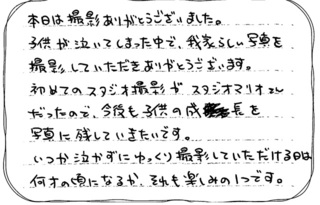 本日は撮影ありがとうございました。
子供が泣いてしまった中で、我家らしい写真を
撮影していただきありがとうございます。
初めてのスタジオ撮影がスタジオマリオさん
だったので、今後も子供の成長を
写真に残していきたいです。
いつか泣かずにゆっくり撮影していただける日は
何才の頃になるか、それも楽しみの1つです。